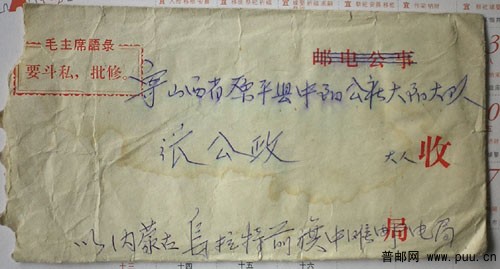 毛主席語录
要斗私，批修。
邮电公事
寄山西省原平县中阳公社大阳大队
张公政
大人 收
以内蒙古乌拉特前旗中滩邮电局
局
十三 十四 十五 十六
普邮网 www.puu.cn